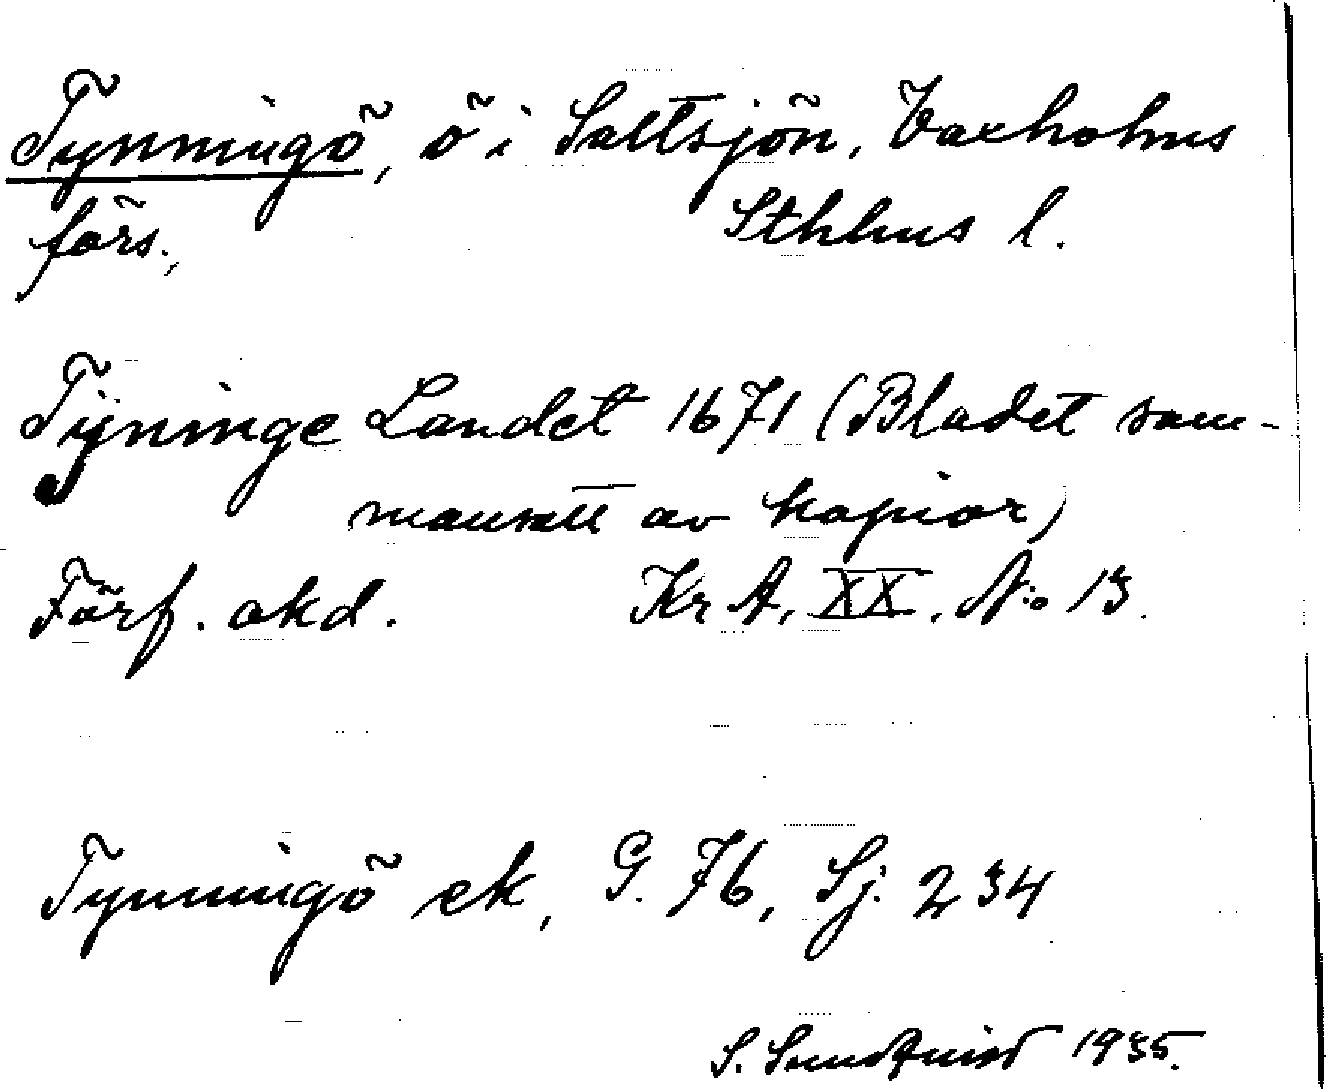 Tynningö, ö i Saltsjön, Vaxholms
förs., Sthlms l.
Tÿninge Landet 1671 (Bladet sam-
mansatt av kopior)
Förf. okd. Kr A, XX, No 13.
Tynningö ek, G. 76, Sj. 234
S. Sundqvist 1935.